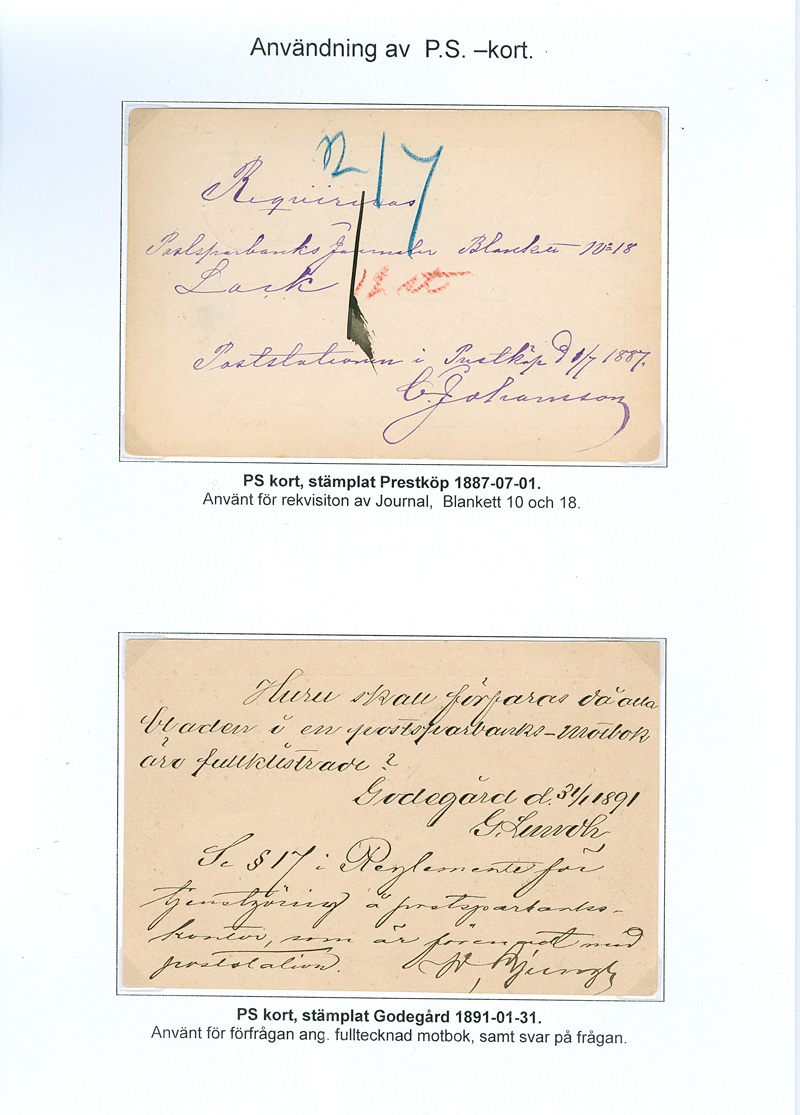 Användning av P.S. –kort.
12/7
Requireras
Postsparbanks Journaler Blankett No 18
Lack 12 st
Poststationen i Prestköp d 1/7 1887.
C. Johansson
PS kort, stämplat Prestköp 1887-07-01.
Använt för rekvisiton av Journal, Blankett 10 och 18.
Huru skall förfaras då alla
bladen i en postsparbanks-motbok
äro fullklistrade?
Godegård d. 31/1 1891
G. Lundh
Se § 17 i Reglemente för
tjenstgöring å postsparbanks-
kontor, som är förenadt med
poststation.
PS kort, stämplat Godegård 1891-01-31.
Använt för förfrågan ang. fulltecknad motbok, samt svar på frågan.